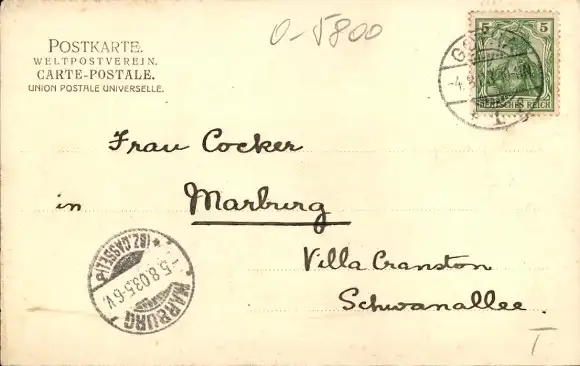 POSTKARTE.
WELTPOSTVEREIN.
CARTE-POSTALE.
UNION POSTALE UNIVERSELLE.
0-5800
5 5
DEUTSCHES REICH
Frau Cocker
in Marburg
Villa Cranston
Schwanallee.
MARBURG
(BZ. CASSEL)
5.8.03.5-6V.
T